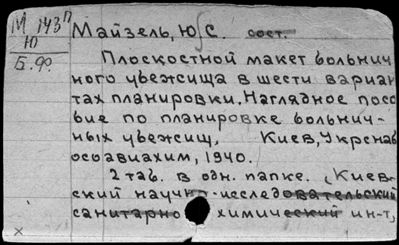 М 143п
Ю
Б.Ф.
Майзель, Ю. С. сост.
Плоскостной макет больнич
ного убежища в шести вариан
тах планировки. Наглядное посо
бие по планировке больнич-
ных убежищ, Киев, Укрснаб
осоавиахим, 1940.
2 таб. в одн. папке. (Киев-
ский научн-исследовательский
санитарно химический ин-т,